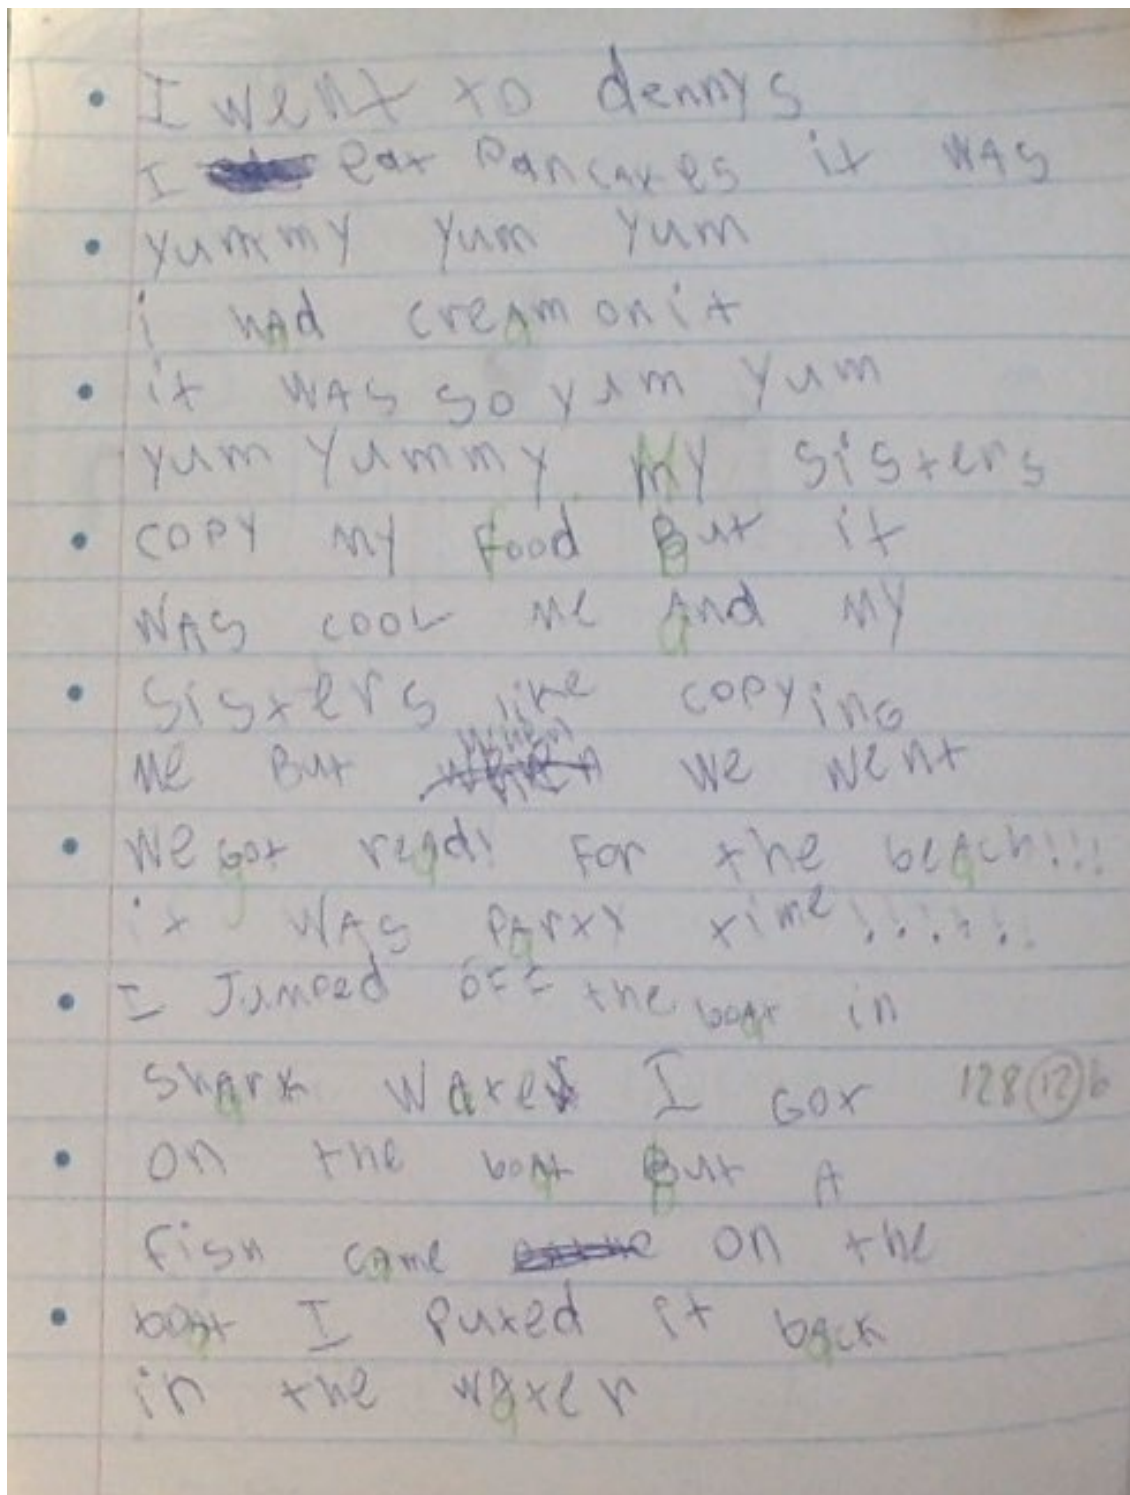 I went to dennys
I eat Pancakes it WAS
yummy yum yum
i hAd creAm on it
it WAS so yum yum
yum yummy My sisters
copy my Food But it
WAS cool me And my
sisters like copying
me But when we went
we Got readi For the beAch!!!
it WAS PArty time!!!!!!
I Jumped off the boAt in
ShArk Water I Got 128 12 6
on the boAt But A
fish cAme on the
boAt I puted it bAck
in the wAter